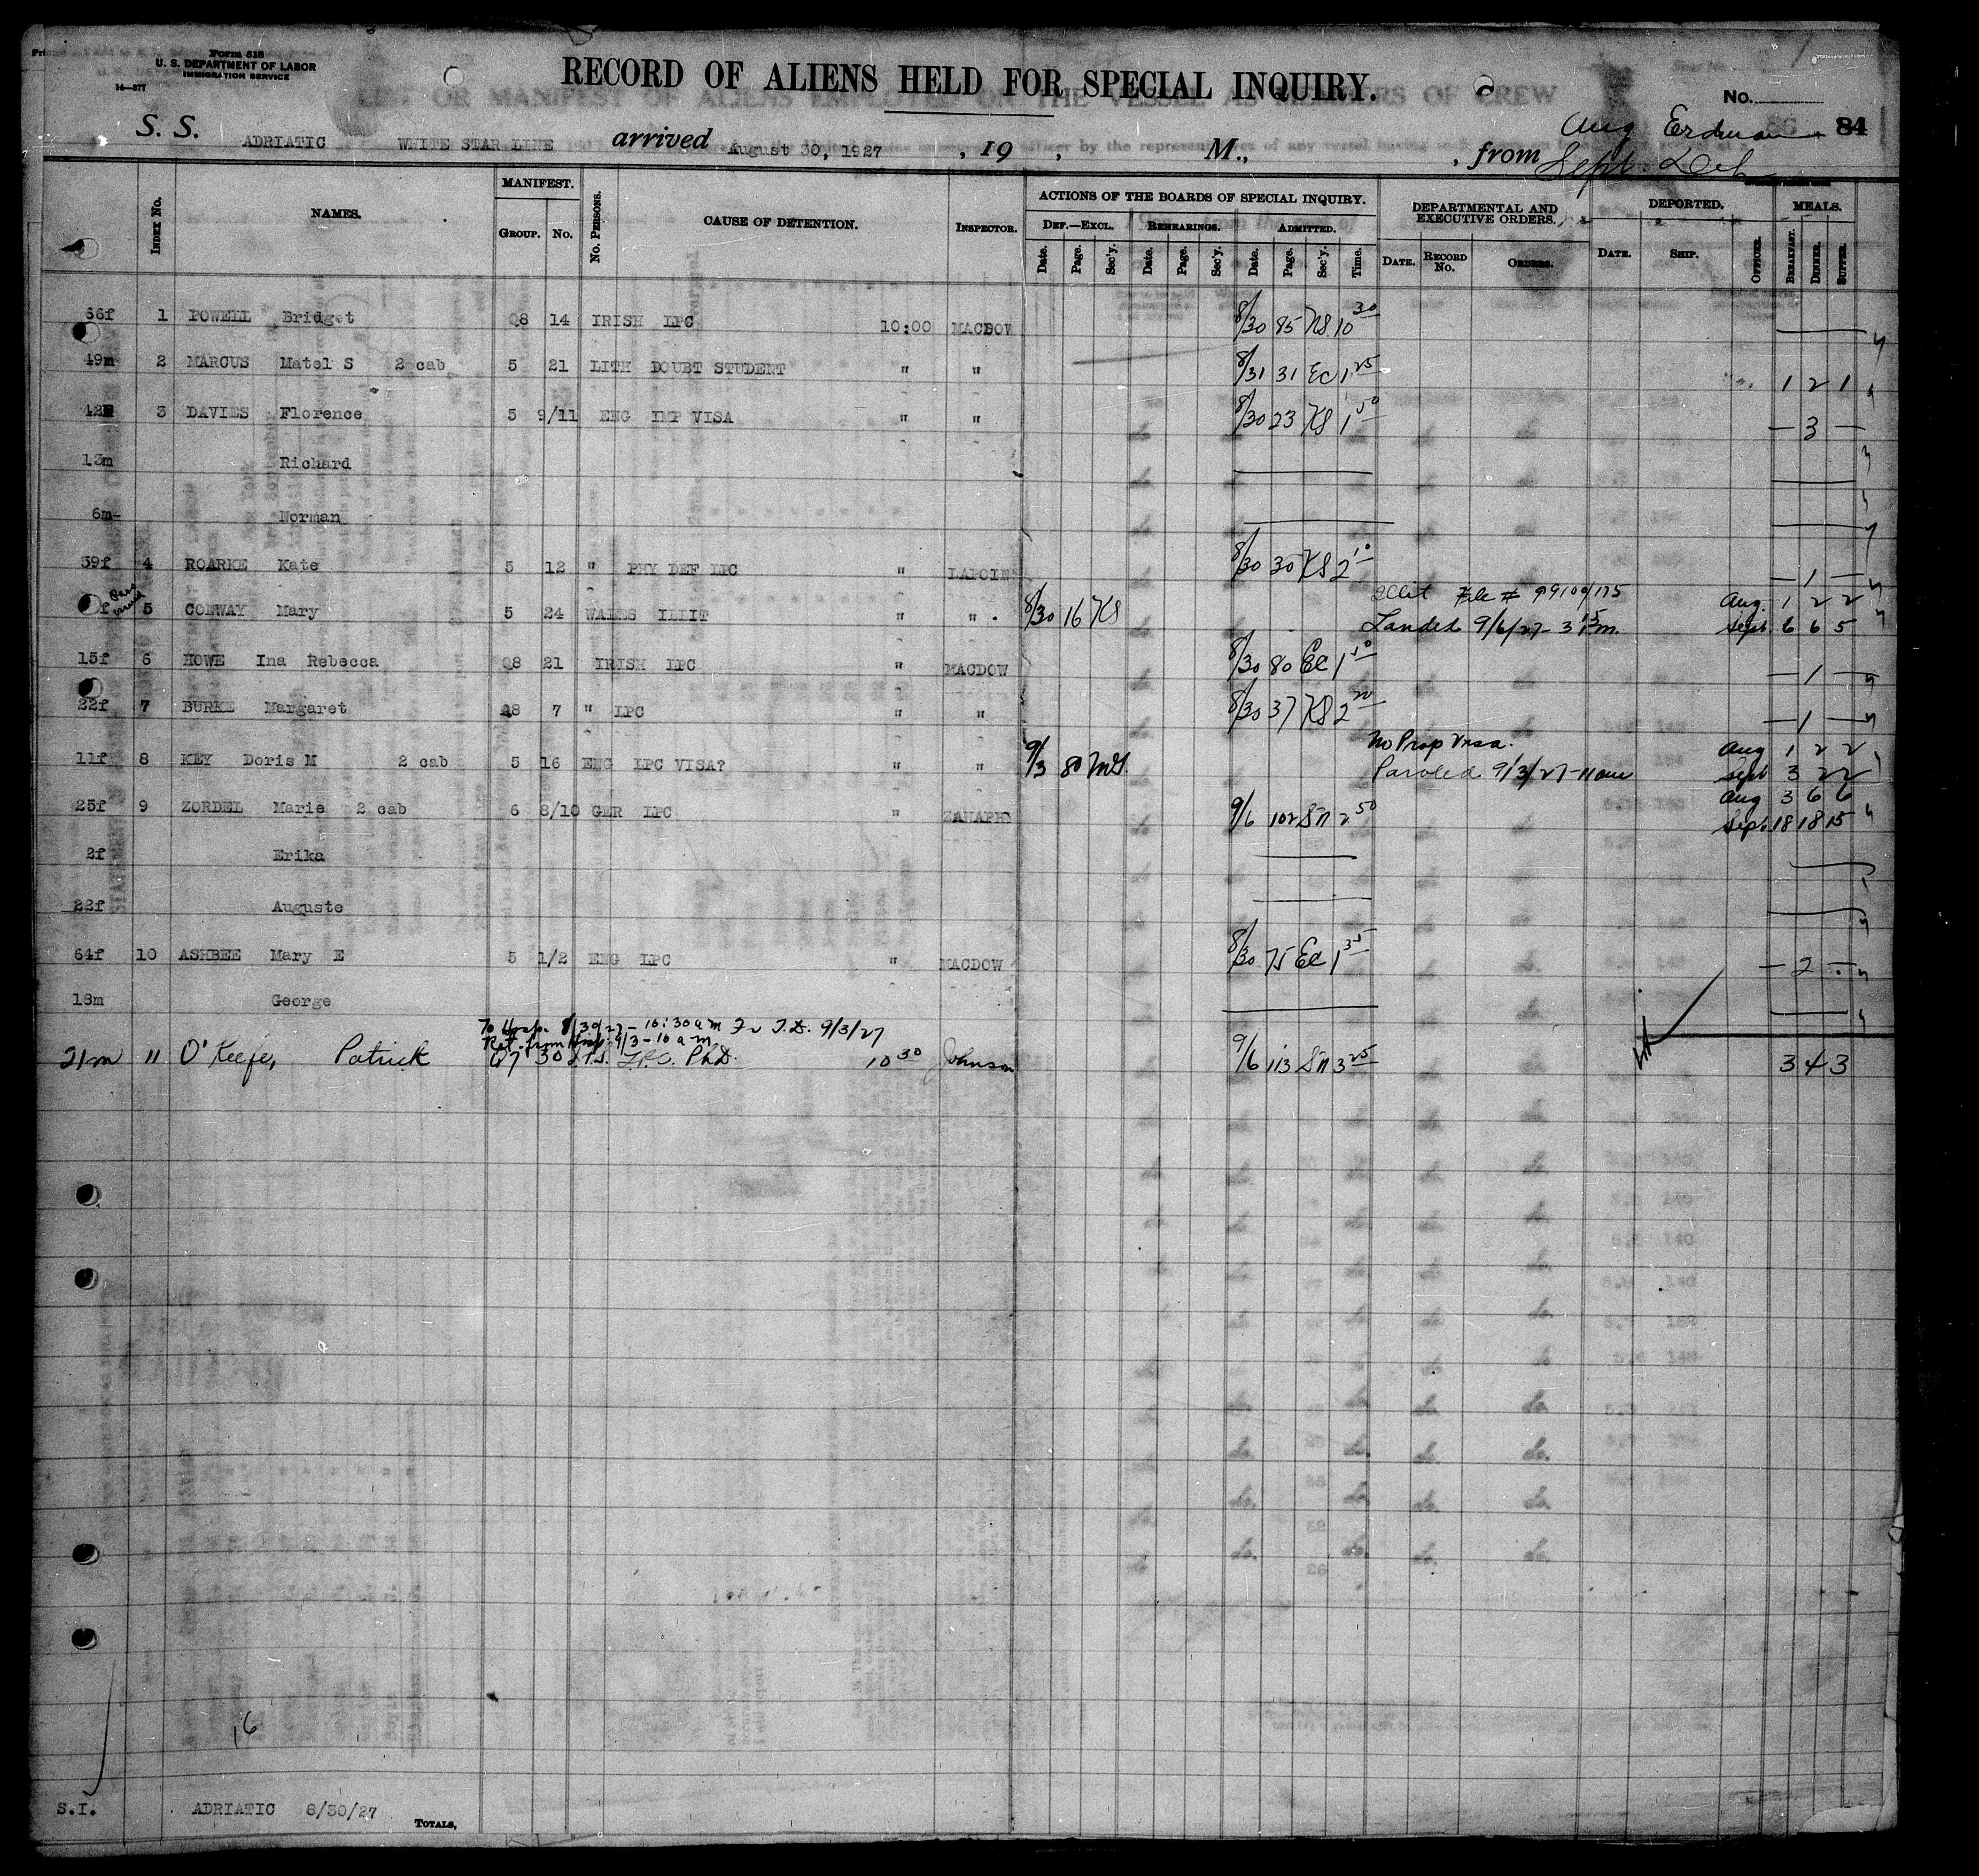 Form 518
U. S. DEPARTMENT OF LABOR
IMMIGRATION SERVICE
14—377
RECORD OF ALIENS HELD FOR SPECIAL INQUIRY.
No.
84
Aug Erdman
S. S. ADRIATIC WHITE STAR LINE arrived August 30, 1927 , 19 , M., , from
Sept.
Index No. NAMES. MANIFEST. GROUP. No. No. PERSONS. CAUSE OF DETENTION. INSPECTOR. ACTIONS OF THE BOARDS OF SPECIAL INQUIRY. DEF.—EXCL. Date. Page. Sec'y. REHEARINGS. Date. Page. Sec'y. ADMITTED. Date. Page. Sec'y. Time. DEPARTMENTAL AND EXECUTIVE ORDERS. DATE. RECORD No. ORDERS. DEPORTED. DATE. SHIP. OFFICER. MEALS. BREAKFAST. DINNER. SUPPER.
56f 1 POWELL Bridget Q8 14 IRISH LPC 10:00 MACDOW 8/30 85 KS 10 30
49m 2 MARCUS Matel S 2 cab 5 21 LITH DOUBT STUDENT " " 8/31 31 EC 1 25 1 2 1
42 3 DAVIES Florence 5 9/11 ENG IMP VISA " " 8/30 23 KS 1 50 — 3 —
13m Richard
6m Norman
59f 4 ROARKE Kate 5 12 " PHY DEF LPC " LAPOIN 8/30 30 KS 2 10 — 1 —
f 5 CONWAY Mary 5 24 WALES ILLIT " " 8/30 16 KS File # 99100/175 Aug. 1 2 2
Landed 9/6/27 - 3 15 pm. Sept. 6 6 5
15f 6 HOWE Ina Rebecca Q8 21 IRISH LPC " MACDOW 8/30 80 EC 1 10 — 1 —
22f 7 BURKE Margaret Q8 7 " LPC " " 8/30 37 KS 2 20 — 1 —
No Prop Visa. Aug 1 2 2
11f 8 KEY Doris M 2 cab 5 16 ENG LPC VISA? " " 9/3 80 MS Paroled 9/3/27 - 11 am Sept 3 2 2
Aug 3 6 6
25f 9 ZORDEL Marie 2 cab 6 8/10 GER LPC " 9/6 102 SN 2 50 Sept. 18 18 15
2f Erika
22f Auguste
64f 10 ASHBEE Mary E 5 1/2 ENG LPC " MACDOW 8/30 75 EC 1 35 — 2 —
18m George
To Hosp. 8/30/27 - 10:30 am 9/3/27
Ret. from Hosp. 9/3 - 10 am.
21m 11 O'Keefe, Patrick Q7 30 L.P.C. Ph.D. 10 30 Johnson 9/6 113 SN 3 25 3 4 3
16
S.I. ADRIATIC 8/30/27 TOTALS,